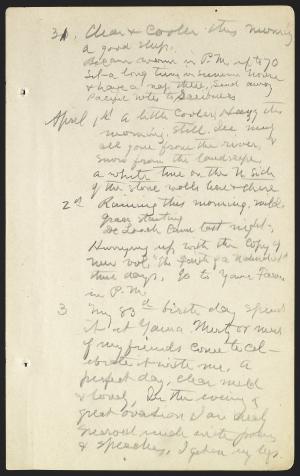 31. Clear & Cooler this morning
a good sleep.
Became warm in P.M. up to 70
Sit a long time in summer house
& have a nap there, send away
Pacific notes to Scribners
April 1st A little cooler, Hazy this
morning, still. Ice nearly
all gone from the river, &
snow from the landscape,
a white line on the N. side
of the stone walls here & there
2d Raining this morning, mild,
grass starting
De Loach came last night,
Hurrying up with the copy of
new vol,
these days. Go to Yama Farms
in P.M.
3 My 83d birth day spend
it at Yama. Sixty or more
of my friends come to cel-
ebrate it with me. A
perfect day, clear mild
& lovely, In the evening a
great ovation I am deal
smeared with poems
& speeches, I open my lips